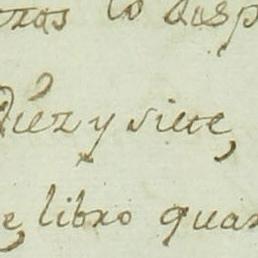 lo disp
Diez y siete,
e, libro quar